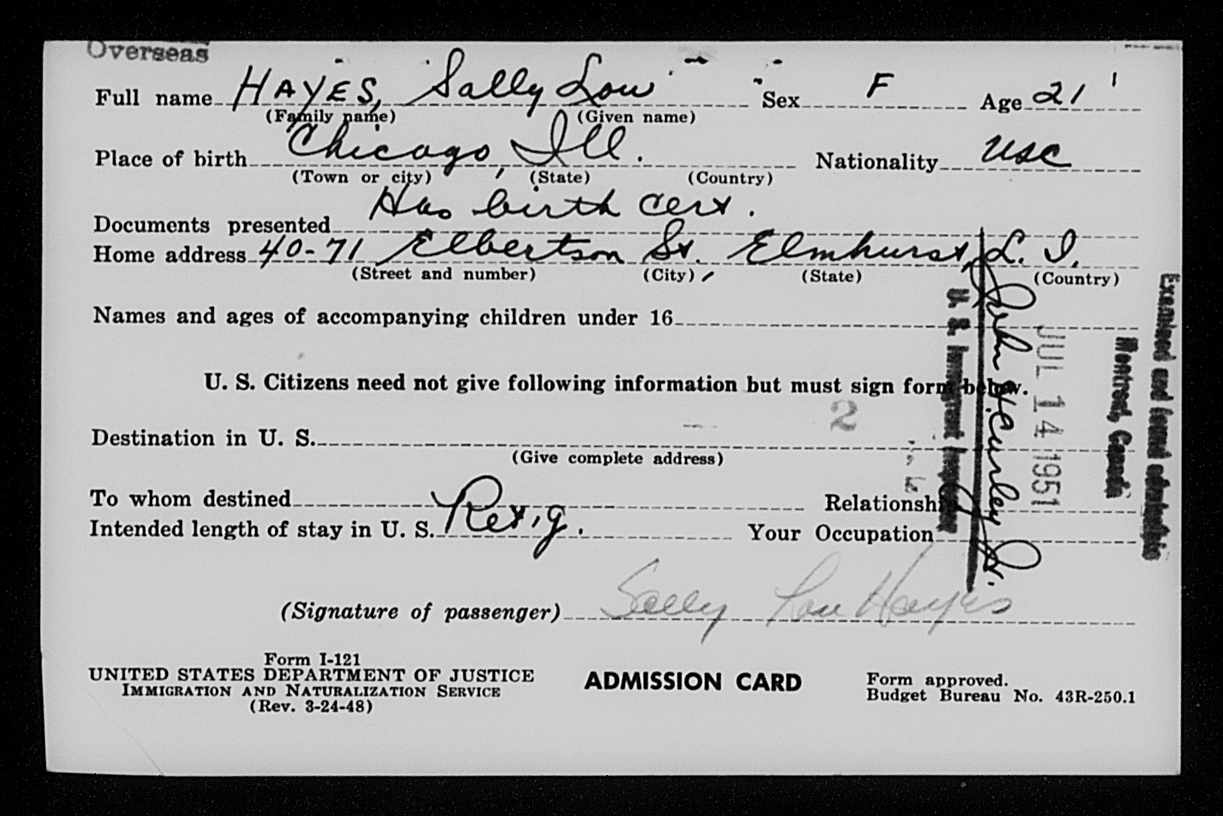 Overseas
Full name HAYES, Sally Lou Sex F Age 21
(Family name) (Given name)
Place of birth Chicago, Ill. Nationality USC
(Town or city) (State) (Country)
Documents presented Has birth cert.
Home address 40-71 Elbertson St. Elmhurst, L. I.
(Street and number) (City) (State) (Country)
Names and ages of accompanying children under 16
U. S. Citizens need not give following information but must sign form below.
2
Destination in U. S.
(Give complete address)
To whom destined Relationship
Intended length of stay in U. S. Ret'g. Your Occupation
(Signature of passenger) Sally Lou Hayes
Form I-121
UNITED STATES DEPARTMENT OF JUSTICE
IMMIGRATION AND NATURALIZATION SERVICE
(Rev. 3-24-48)
ADMISSION CARD
Form approved.
Budget Bureau No. 43R-250.1
Examined and found admissible
Montreal, Canada
JUL 14 1951
John H. Curley Jr.
U. S. Immigrant Inspector